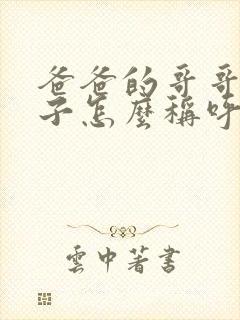 爸爸的哥哥
子怎麼稱呼
雲中著書